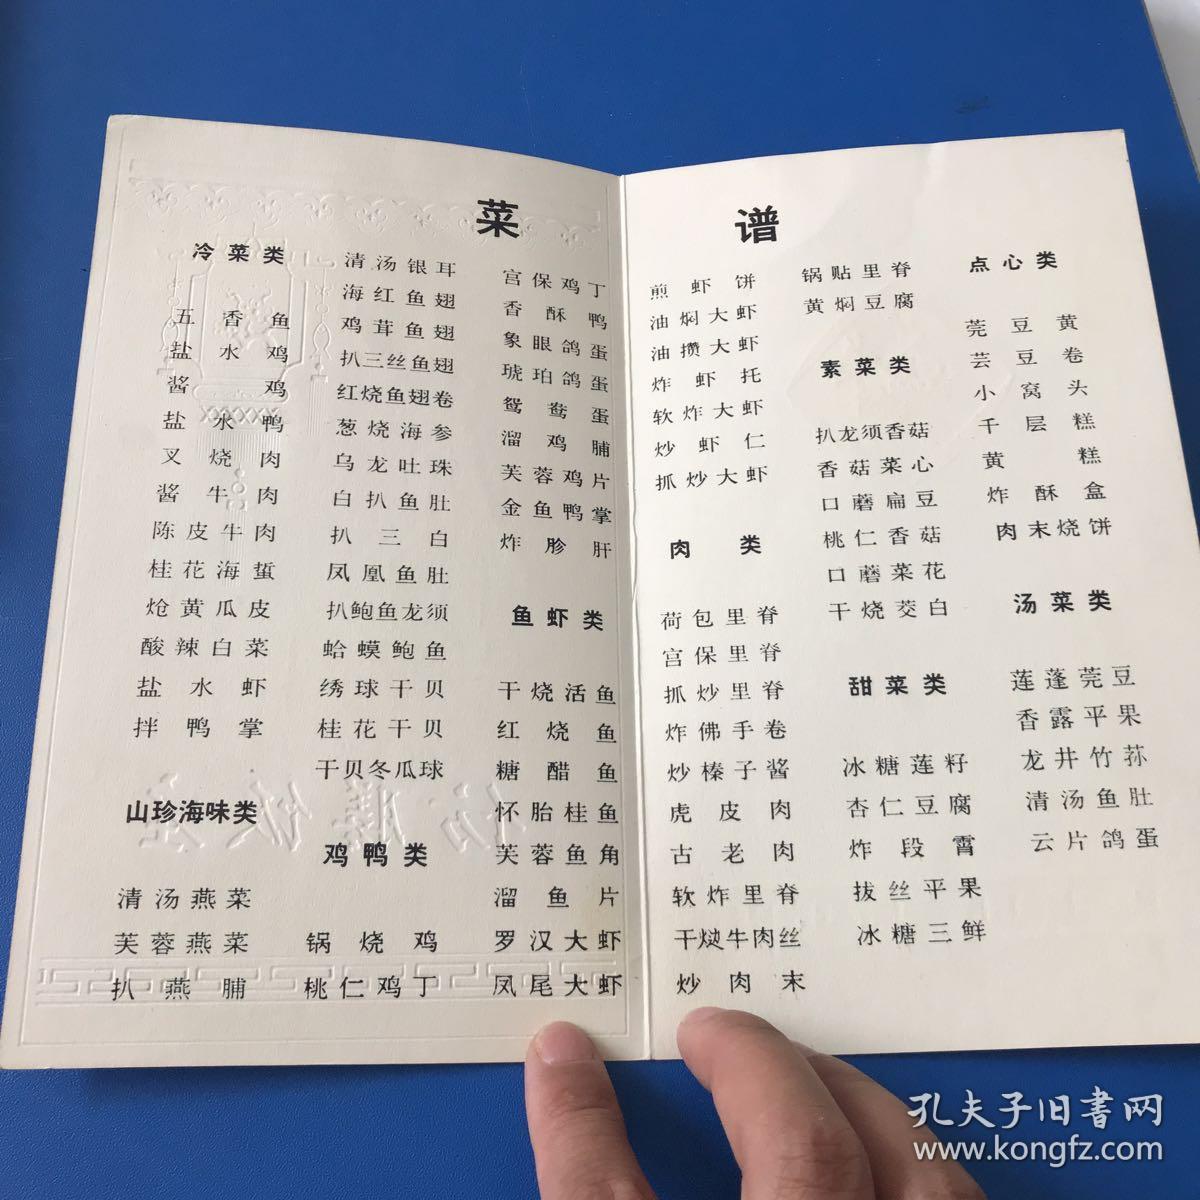 菜谱
冷菜类
五香鱼
盐水鸡
酱鸡
盐水鸭
叉烧肉
酱牛肉
陈皮牛肉
桂花海蜇
炝黄瓜皮
酸辣白菜
盐水虾
拌鸭掌
山珍海味类
清汤燕菜
芙蓉燕菜
扒燕脯
清汤银耳
海红鱼翅
鸡茸鱼翅
扒三丝鱼翅
红烧鱼翅卷
葱烧海参
乌龙吐珠
白扒鱼肚
扒三白
凤凰鱼肚
扒鲍鱼龙须
蛤蟆鲍鱼
绣球干贝
桂花干贝
干贝冬瓜球
鸡鸭类
锅烧鸡
桃仁鸡丁
宫保鸡丁
香酥鸭
象眼鸽蛋
琥珀鸽蛋
鸳鸯蛋
溜鸡脯
芙蓉鸡片
金鱼鸭掌
炸胗肝
鱼虾类
干烧活鱼
红烧鱼
糖醋鱼
怀胎桂鱼
芙蓉鱼角
溜鱼片
罗汉大虾
凤尾大虾
煎虾饼
油焖大虾
油攒大虾
炸虾托
软炸大虾
炒虾仁
抓炒大虾
肉类
荷包里脊
宫保里脊
抓炒里脊
炸佛手卷
炒榛子酱
虎皮肉
古老肉
软炸里脊
干㸆牛肉丝
炒肉末
锅贴里脊
黄焖豆腐
素菜类
扒龙须香菇
香菇菜心
口蘑扁豆
桃仁香菇
口蘑菜花
干烧茭白
甜菜类
冰糖莲籽
杏仁豆腐
炸段霄
拔丝平果
冰糖三鲜
点心类
莞豆黄
芸豆卷
小窝头
千层糕
黄糕
炸酥盒
肉末烧饼
汤菜类
莲蓬莞豆
香露平果
龙井竹荪
清汤鱼肚
云片鸽蛋
仿膳饭庄
孔夫子旧书网
www.kongfz.com